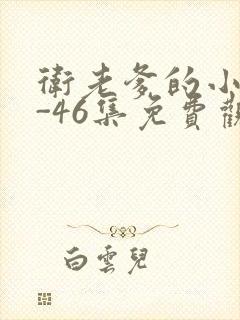 衛老爹的小
-46集免費觀
白雲兒